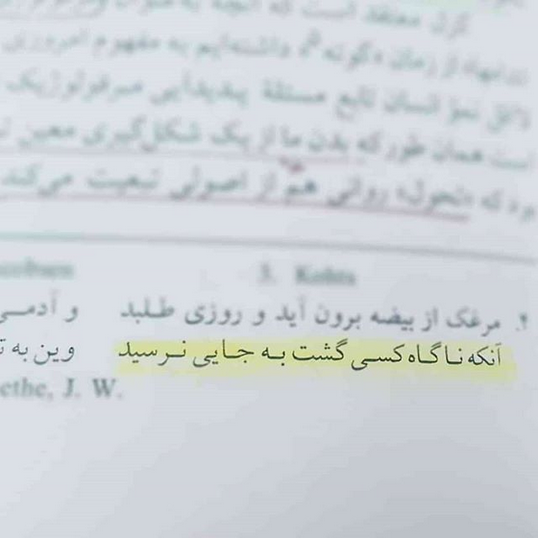 کزل معتقد است که آنچه به
از زمان «گوته» داشته‌ایم به مفهوم امروزی
نمو انسان تابع مسئلهٔ پدیدآیی مرفولوژیک
است همان طور که بدن ما از یک شکل‌گیری معین
بود که «تحول» روانی هم از اصولی تبعیت می‌کند
3. Kohts
۴. مرغک از بیضه برون آید و روزی طلبد و آدمی
آنکه ناگاه کسی گشت به جایی نرسید وین به
ethe, J. W.